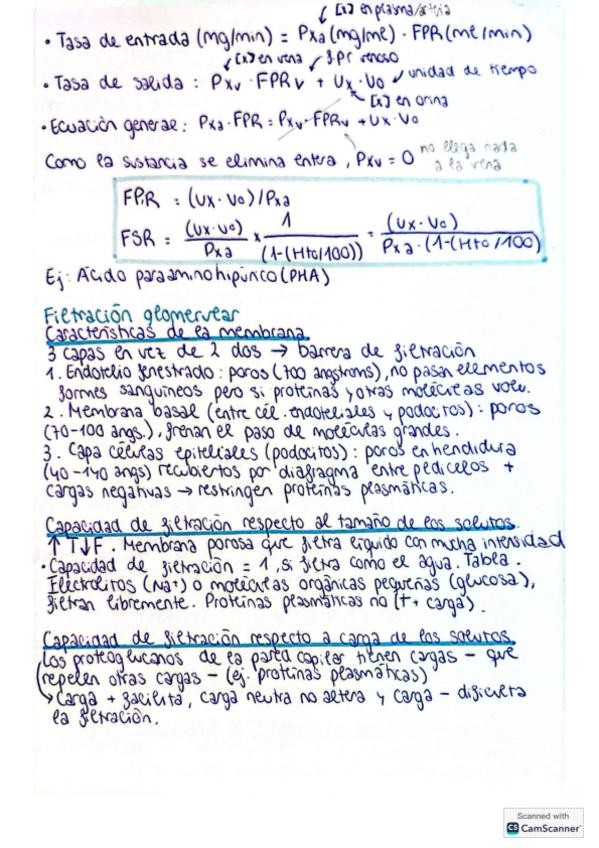 [x] en plasma/arteria
• Tasa de entrada (mg/min) = Pxa (mg/ml) · FPR (ml/min)
[x] en vena
F.Pr venoso
• Tasa de salida : Pxv · FPRv + Ux · Vo
unidad de tiempo
[x] en orina
• Ecuación general: Pxa · FPR = Pxv · FPRv + Ux · Vo
Como la sustancia se elimina entera, Pxv = 0
no llega nada
a la vena
FPR = (Ux · Vo) / Pxa
FSR = (Ux · Vo) / Pxa x 1 / (1-(Hto/100)) = (Ux · Vo) / Pxa · (1-(Hto/100))
Ej: Ácido paraaminohipúrico (PHA)
Filtración glomerular
Características de la membrana.
3 capas en vez de 2 dos → barrera de filtración
1. Endotelio fenestrado: poros (700 angstroms), no pasan elementos
formes sanguíneos pero si proteínas y otras moléculas volu.
2. Membrana basal (entre cél. endoteliales y podocitos): poros
(70-100 angs.), frenan el paso de moléculas grandes.
3. Capa células epiteliales (podocitos): poros en hendidura
(40-140 angs) recubiertos por diafragma entre pedicelos +
cargas negativas → restringen proteínas plasmáticas.
Capacidad de filtración respecto al tamaño de los solutos.
↑T↓F. Membrana porosa que filtra líquido con mucha intensidad
• Capacidad de filtración = 1, si filtra como el agua. Tabla.
Electrolitos (Na+) o moléculas orgánicas pequeñas (glucosa),
filtran libremente. Proteínas plasmáticas no (T + carga).
Capacidad de filtración respecto a carga de los solutos.
Los proteoglucanos de la pared capilar tienen cargas - que
repelen otras cargas - (ej. proteínas plasmáticas)
↳ Carga + facilita, carga neutra no altera y carga - dificulta
la filtración.
Scanned with
CS CamScanner